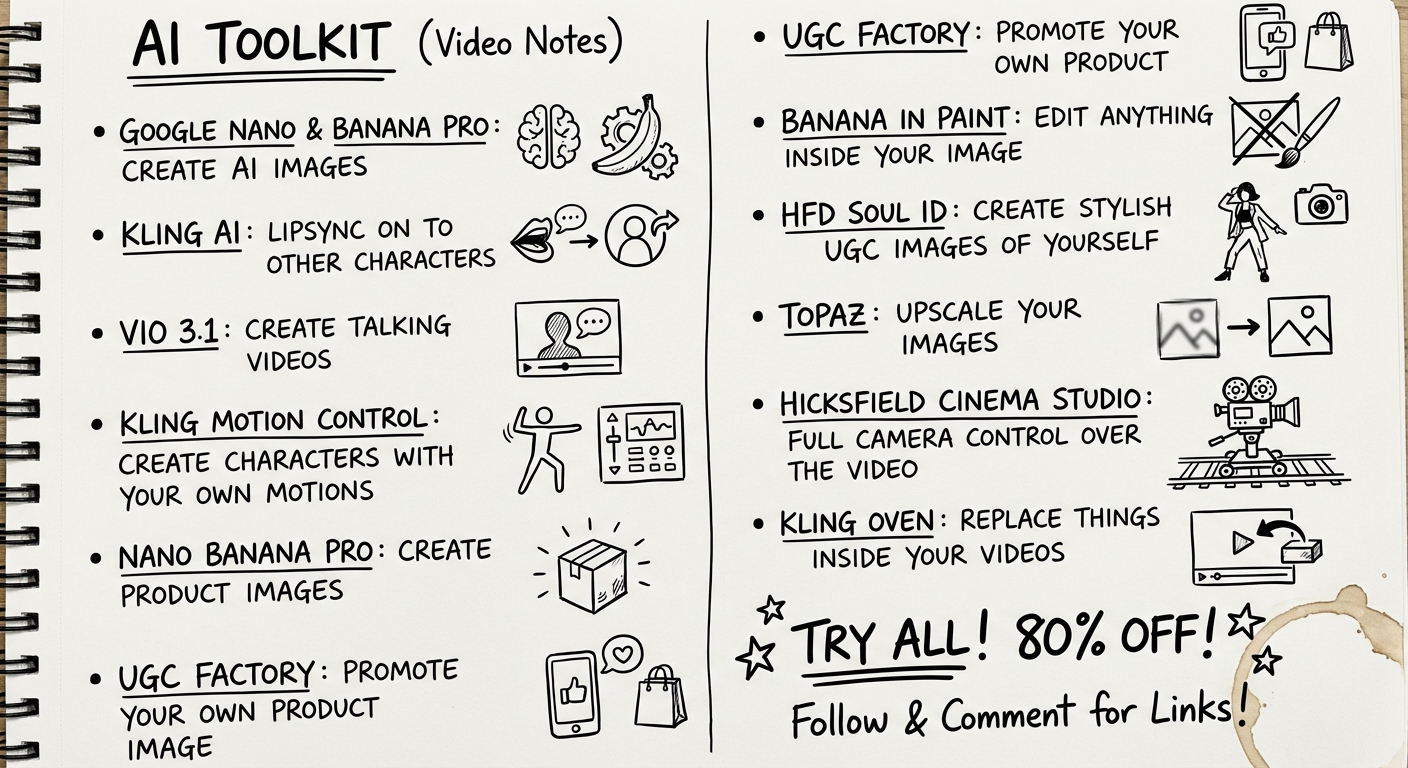 AI TOOLKIT (Video Notes)
• GOOGLE NANO & BANANA PRO:
CREATE AI IMAGES
• KLING AI: LIPSYNC ON TO
OTHER CHARACTERS
• VIO 3.1: CREATE TALKING
VIDEOS
• KLING MOTION CONTROL:
CREATE CHARACTERS WITH
YOUR OWN MOTIONS
• NANO BANANA PRO: CREATE
PRODUCT IMAGES
• UGC FACTORY: PROMOTE
YOUR OWN PRODUCT
IMAGE
• UGC FACTORY: PROMOTE YOUR
OWN PRODUCT
• BANANA IN PAINT: EDIT ANYTHING
INSIDE YOUR IMAGE
• HFD SOUL ID: CREATE STYLISH
UGC IMAGES OF YOURSELF
• TOPAZ: UPSCALE YOUR
IMAGES
• HICKSFIELD CINEMA STUDIO:
FULL CAMERA CONTROL OVER
THE VIDEO
• KLING OVEN: REPLACE THINGS
INSIDE YOUR VIDEOS
TRY ALL! 80% OFF!
Follow & Comment for Links!